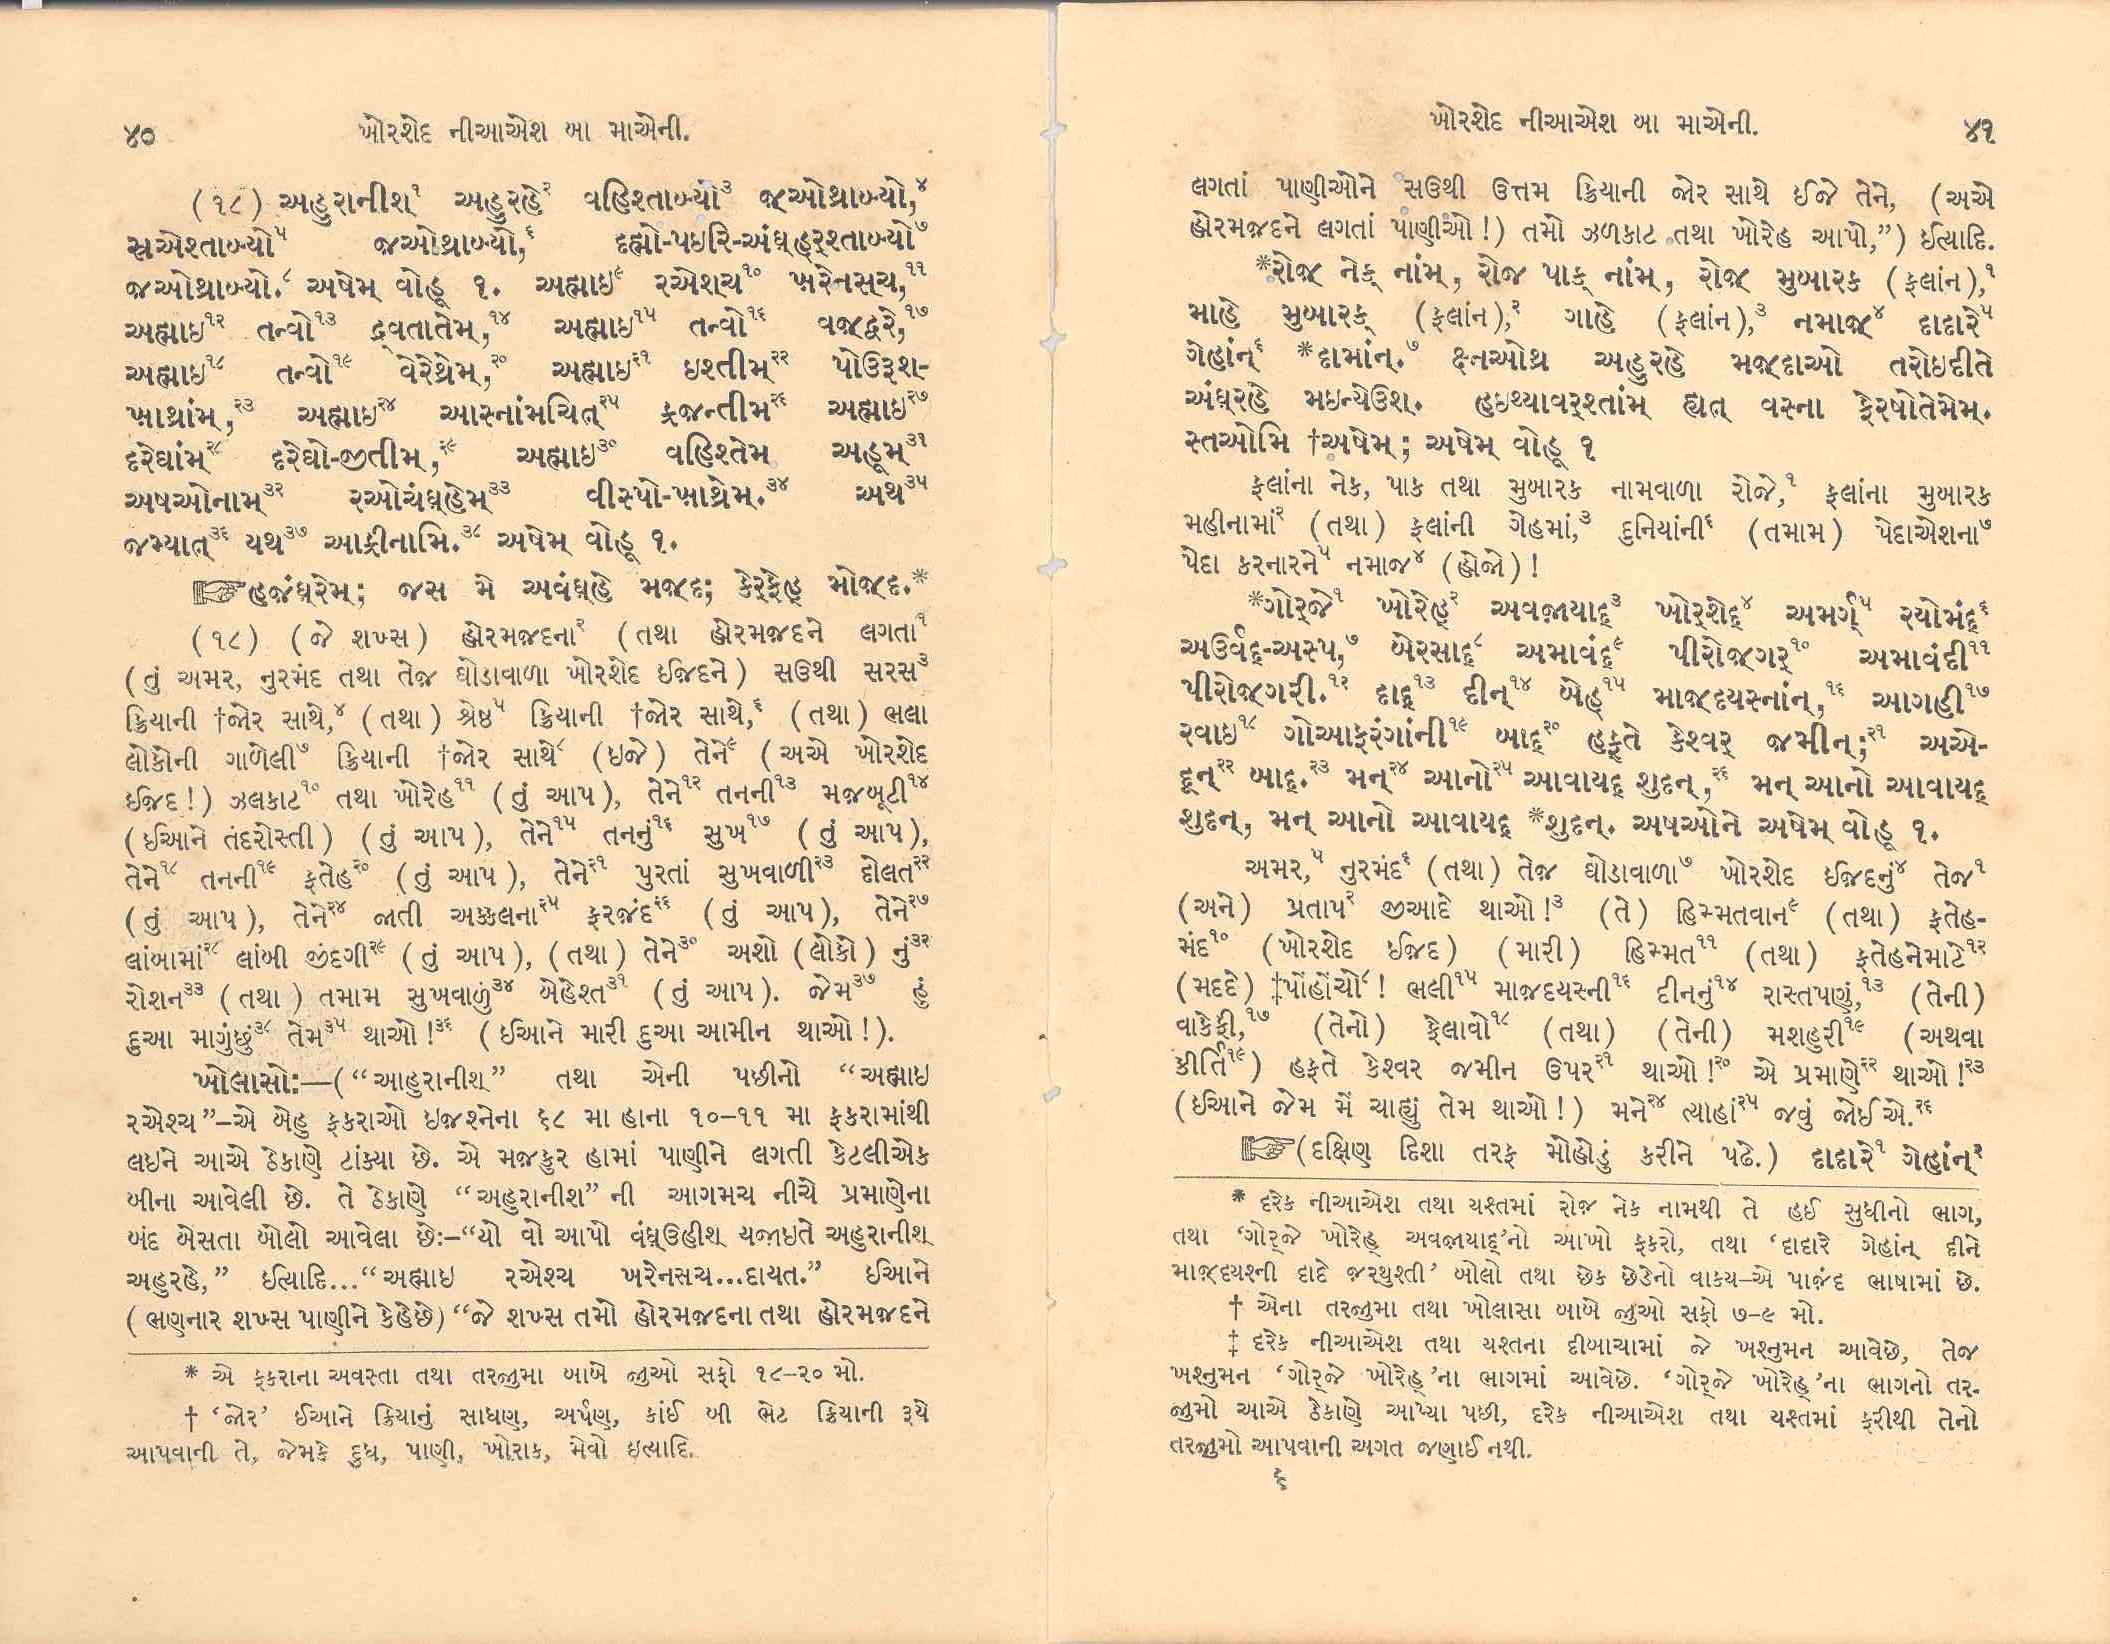 ૪૦
ખોરશેદ નીઆએશ બા માએની.
(૧૮) અહુરાનીશ્૧ અહુરહે૨ વહિશ્તાબ્યો૩ જ઼ઓથ્રાબ્યો,૪
સ્રએશ્તાબ્યો૫ જ઼ઓથ્રાબ્યો,૬ દહ્મો-પઇરિ-અંઘ્હર્શ્તાબ્યો૭
જ઼ઓથ્રાબ્યો.૮ અષેમ્ વોહૂ ૧. અહ્માઇ૯ રએશ્ચ૧૦ ખ઼રેનસ્ચ,૧૧
અહ્માઇ૧૨ તન્વો૧૩ દ્ર્વતાતેમ્,૧૪ અહ્માઇ૧૫ તન્વો૧૬ વજ઼્દ્વરે,૧૭
અહ્માઇ૧૮ તન્વો૧૯ વેરેથ્રેમ્,૨૦ અહ્માઇ૨૧ ઇશ્તીમ્૨૨ પોઉરૂશ-
ખ઼ાથ્રાંમ્,૨૩ અહ્માઇ૨૪ આસ્નાંમચિત્૨૫ ફ્રજ઼ન્તીમ૨૬ અહ્માઇ૨૭
દરેઘાંમ્૨૮ દરેઘો-જીતીમ્,૨૯ અહ્માઇ૩૦ વહિશ્તેમ્ અહૂમ્૩૧
અષઓનામ્૩૨ રઓચંઘ્હેમ્૩૩ વીસ્પો-ખ઼ાથ્રેમ્.૩૪ અથ૩૫
જમ્યાત્૩૬ યથ૩૭ આફ્રીનામિ.૩૮ અષેમ્ વોહૂ ૧.
હજ઼ંઘ્રેમ્; જસ મે અવંઘ્હે મજ઼્દ; કેર્ફેહ્ મોજ઼્દ.*
(૧૮) (જે શખ્સ) હોરમજ઼દના૨ (તથા હોરમજ઼દને લગતા૧
(તું અમર, નુરમંદ તથા તેજ઼ ઘોડાવાળા ખોરશેદ ઇજ઼િદને) સઉથી સરસ૩
ક્રિયાની †જોર સાથે,૪ (તથા) શ્રેષ્ઠ૫ ક્રિયાની †જોર સાથે,૬ (તથા) ભલા
લોકોની ગાળેલી૭ ક્રિયાની †જોર સાથે૮ (ઇજે) તેને૯ (અએ ખોરશેદ
ઇજ઼િદ!) ઝલકાટ૧૦ તથા ખોરેહ૧૧ (તું આપ), તેને૧૨ તનની૧૩ મજબૂટી૧૪
(ઈઆને તંદરોસ્તી) (તું આપ), તેને૧૫ તનનું૧૬ સુખ૧૭ (તું આપ),
તેને૧૮ તનની૧૯ ફતેહ૨૦ (તું આપ), તેને૨૧ પુરતાં સુખવાળી૨૩ દોલત૨૨
(તું આપ), તેને૨૪ જાતી અક્કલના૨૫ ફરજ઼ંદ૨૬ (તું આપ), તેને૨૭
લાંબામાં૨૮ લાંબી જીંદગી૨૯ (તું આપ), (તથા) તેને૩૦ અશો (લોકો) નું૩૨
રોશન૩૩ (તથા) તમામ સુખવાળું૩૪ બેહેશ્ત૩૧ (તું આપ). જેમ૩૭ હું
દુઆ માગુંછું૩૮ તેમ૩૫ થાઓ!૩૬ (ઈઆને મારી દુઆ આમીન થાઓ!).
ખોલાસો:—(“આહુરાનીશ્” તથા એની પછીનો “અહ્માઇ
રએશ્ચ”–એ બેહુ ફકરાઓ ઇજ઼શ્નેના ૬૮ મા હાના ૧૦–૧૧ મા ફકરામાંથી
લઇને આએ ઠેકાણે ટાંક્યા છે. એ મજ઼કુર હામાં પાણીને લગતી કેટલીએક
બીના આવેલી છે. તે ઠેકાણે “અહુરાનીશ”ની આગમચ નીચે પ્રમાણેના
બંદ બેસતા બોલો આવેલા છે:–“યો વો આપો વંઘ્ઉહીશ્ યજ઼ાઇતે અહુરાનીશ્
અહુરહે,” ઇત્યાદિ...“અહ્માઇ રએશ્ચ ખરેનસચ...દાયત.” ઈઆને
(ભણનાર શખ્સ પાણીને કેહેછે) “જે શખ્સ તમો હોરમજ઼દના તથા હોરમજ઼દને
* એ ફકરાના અવસ્તા તથા તરજુમા બાબે જુઓ સફો ૧૮–૨૦ મો.
† ‘જોર’ ઈઆને ક્રિયાનું સાધણ, અર્પણ, કાંઈ બી ભેટ ક્રિયાની રૂયે
આપવાની તે, જેમકે દુધ, પાણી, ખોરાક, મેવો ઇત્યાદિ.
ખોરશેદ નીઆએશ બા માએની.
૪૧
લગતાં પાણીઓને સઉથી ઉત્તમ ક્રિયાની જોર સાથે ઈજે તેને, (અએ
હોરમજ઼દને લગતાં પાણીઓ!) તમો ઝળકાટ તથા ખોરેહ આપો,”) ઈત્યાદિ.
*રોજ઼ નેક્ નાંમ્, રોજ઼ પાક્ નાંમ્, રોજ઼ મુબારક (ફલાંન),૧
માહે મુબારક્ (ફલાંન),૨ ગાહે (ફલાંન),૩ નમાજ઼૪ દાદારે૫
ગેહાંન્૬ *દામાંન્.૭ ક્ષ્નઓથ્ર અહુરહે મજ઼્દાઓ તરોઇદીતે
અંઘ્રહે મઇન્યેઉશ્. હઇથ્યાવર્શ્તાંમ્ હ્યત્ વસ્ના ફેરષોતેમેમ્.
સ્તઓમિ †અષેમ્; અષેમ્ વોહૂ ૧
ફલાંના નેક, પાક તથા મુબારક નામવાળા રોજે,૧ ફલાંના મુબારક
મહીનામાં૨ (તથા) ફલાંની ગેહમાં,૩ દુનિયાંની૬ (તમામ) પેદાએશના૭
પેદા કરનારને૫ નમાજ૪ (હોજો)!
*ગોર્જે૧ ખોરેહ્૨ અવજ઼ાયાદ્૩ ખોર્શેદ્૪ અમર્ગ્૫ રયોમંદ્૬
અઉર્વંદ્-અસ્પ,૭ બેરસાદ્૮ અમાવંદ્૯ પીરોજ઼્ગર્૧૦ અમાવંદી૧૧
પીરોજ઼્ગરી.૧૨ દાદ્૧૩ દીન્૧૪ બેહ્૧૫ માજ઼્દયસ્નાંન્,૧૬ આગહી૧૭
રવાઇ૧૮ ગોઆફ્રંગાંની૧૯ બાદ્૨૦ હફ્તે કેશ્વર્ જમીન્;૨૧ અએ-
દૂન્૨૨ બાદ્.૨૩ મન્૨૪ આનો૨૫ આવાયદ્ શુદન્,૨૬ મન્ આનો આવાયદ્
શુદન્, મન્ આનો આવાયદ્ *શુદન્. અષઓને અષેમ્ વોહૂ ૧.
અમર,૫ નુરમંદ૬ (તથા) તેજ઼ ઘોડાવાળા૭ ખોરશેદ ઈજ઼દનું૪ તેજ૧
(અને) પ્રતાપ૨ જીઆદે થાઓ!૩ (તે) હિમ્મતવાન૯ (તથા) ફતેહ-
મંદ૧૦ (ખોરશેદ ઈજ઼દ) (મારી) હિમ્મત૧૧ (તથા) ફતેહનેમાટે૧૨
(મદદે) ‡પોંહોંચો૮! ભલી૧૫ માજ઼દયસ્ની૧૬ દીનનું૧૪ રાસ્તપણું,૧૩ (તેની)
વાકેફી,૧૭ (તેનો) ફેલાવો૧૮ (તથા) (તેની) મશહુરી૧૯ (અથવા
કીર્તિ૧૯) હફતે કેશ્વર જમીન ઉપર૨૧ થાઓ!૨૦ એ પ્રમાણે૨૨ થાઓ!૨૩
(ઈઆને જેમ મેં ચાહ્યું તેમ થાઓ!) મને૨૪ ત્યાહાં૨૫ જવું જોઈએ.૨૬
(દક્ષિણ દિશા તરફ મોહોડું કરીને પઢે.) દાદારે૧ ગેહાંન્૨
* દરેક નીઆએશ તથા યશ્તમાં રોજ઼ નેક નામથી તે હઈ સુધીનો ભાગ,
તથા ‘ગોર્જે ખોરેહ્ અવજ઼ાયાદ્’નો આખો ફકરો, તથા ‘દાદારે ગેહાંન્ દીને
માજ઼્દયશ્ની દાદે જ઼રથુશ્તી’ બોલો તથા છેક છેડેનો વાક્ય–એ પાજ઼ંદ ભાષામાં છે.
† એના તરજુમા તથા ખોલાસા બાબે જુઓ સફો ૭–૯ મો.
‡ દરેક નીઆએશ તથા યશ્તના દીબાચામાં જે ખશ્નુમન આવેછે, તેજ
ખશ્નુમન ‘ગોર્જે ખોરેહ્’ના ભાગમાં આવેછે. ‘ગોર્જે ખોરેહ્’ના ભાગનો તર-
જુમો આએ ઠેકાણે આપ્યા પછી, દરેક નીઆએશ તથા યશ્તમાં ફરીથી તેનો
તરજુમો આપવાની અગત જણાઈ નથી.
૬